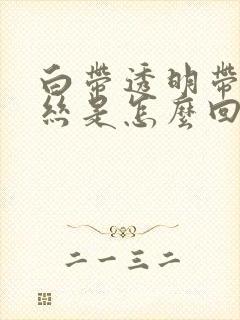 白帶透明帶
絲是怎麼回
二一三二